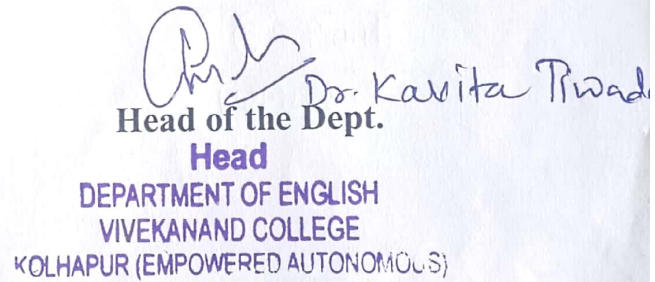 Dr. Kavita
Head of the Dept.
Head
DEPARTMENT OF ENGLISH
VIVEKANAND COLLEGE
KOLHAPUR (EMPOWERED AUTONOMOUS)